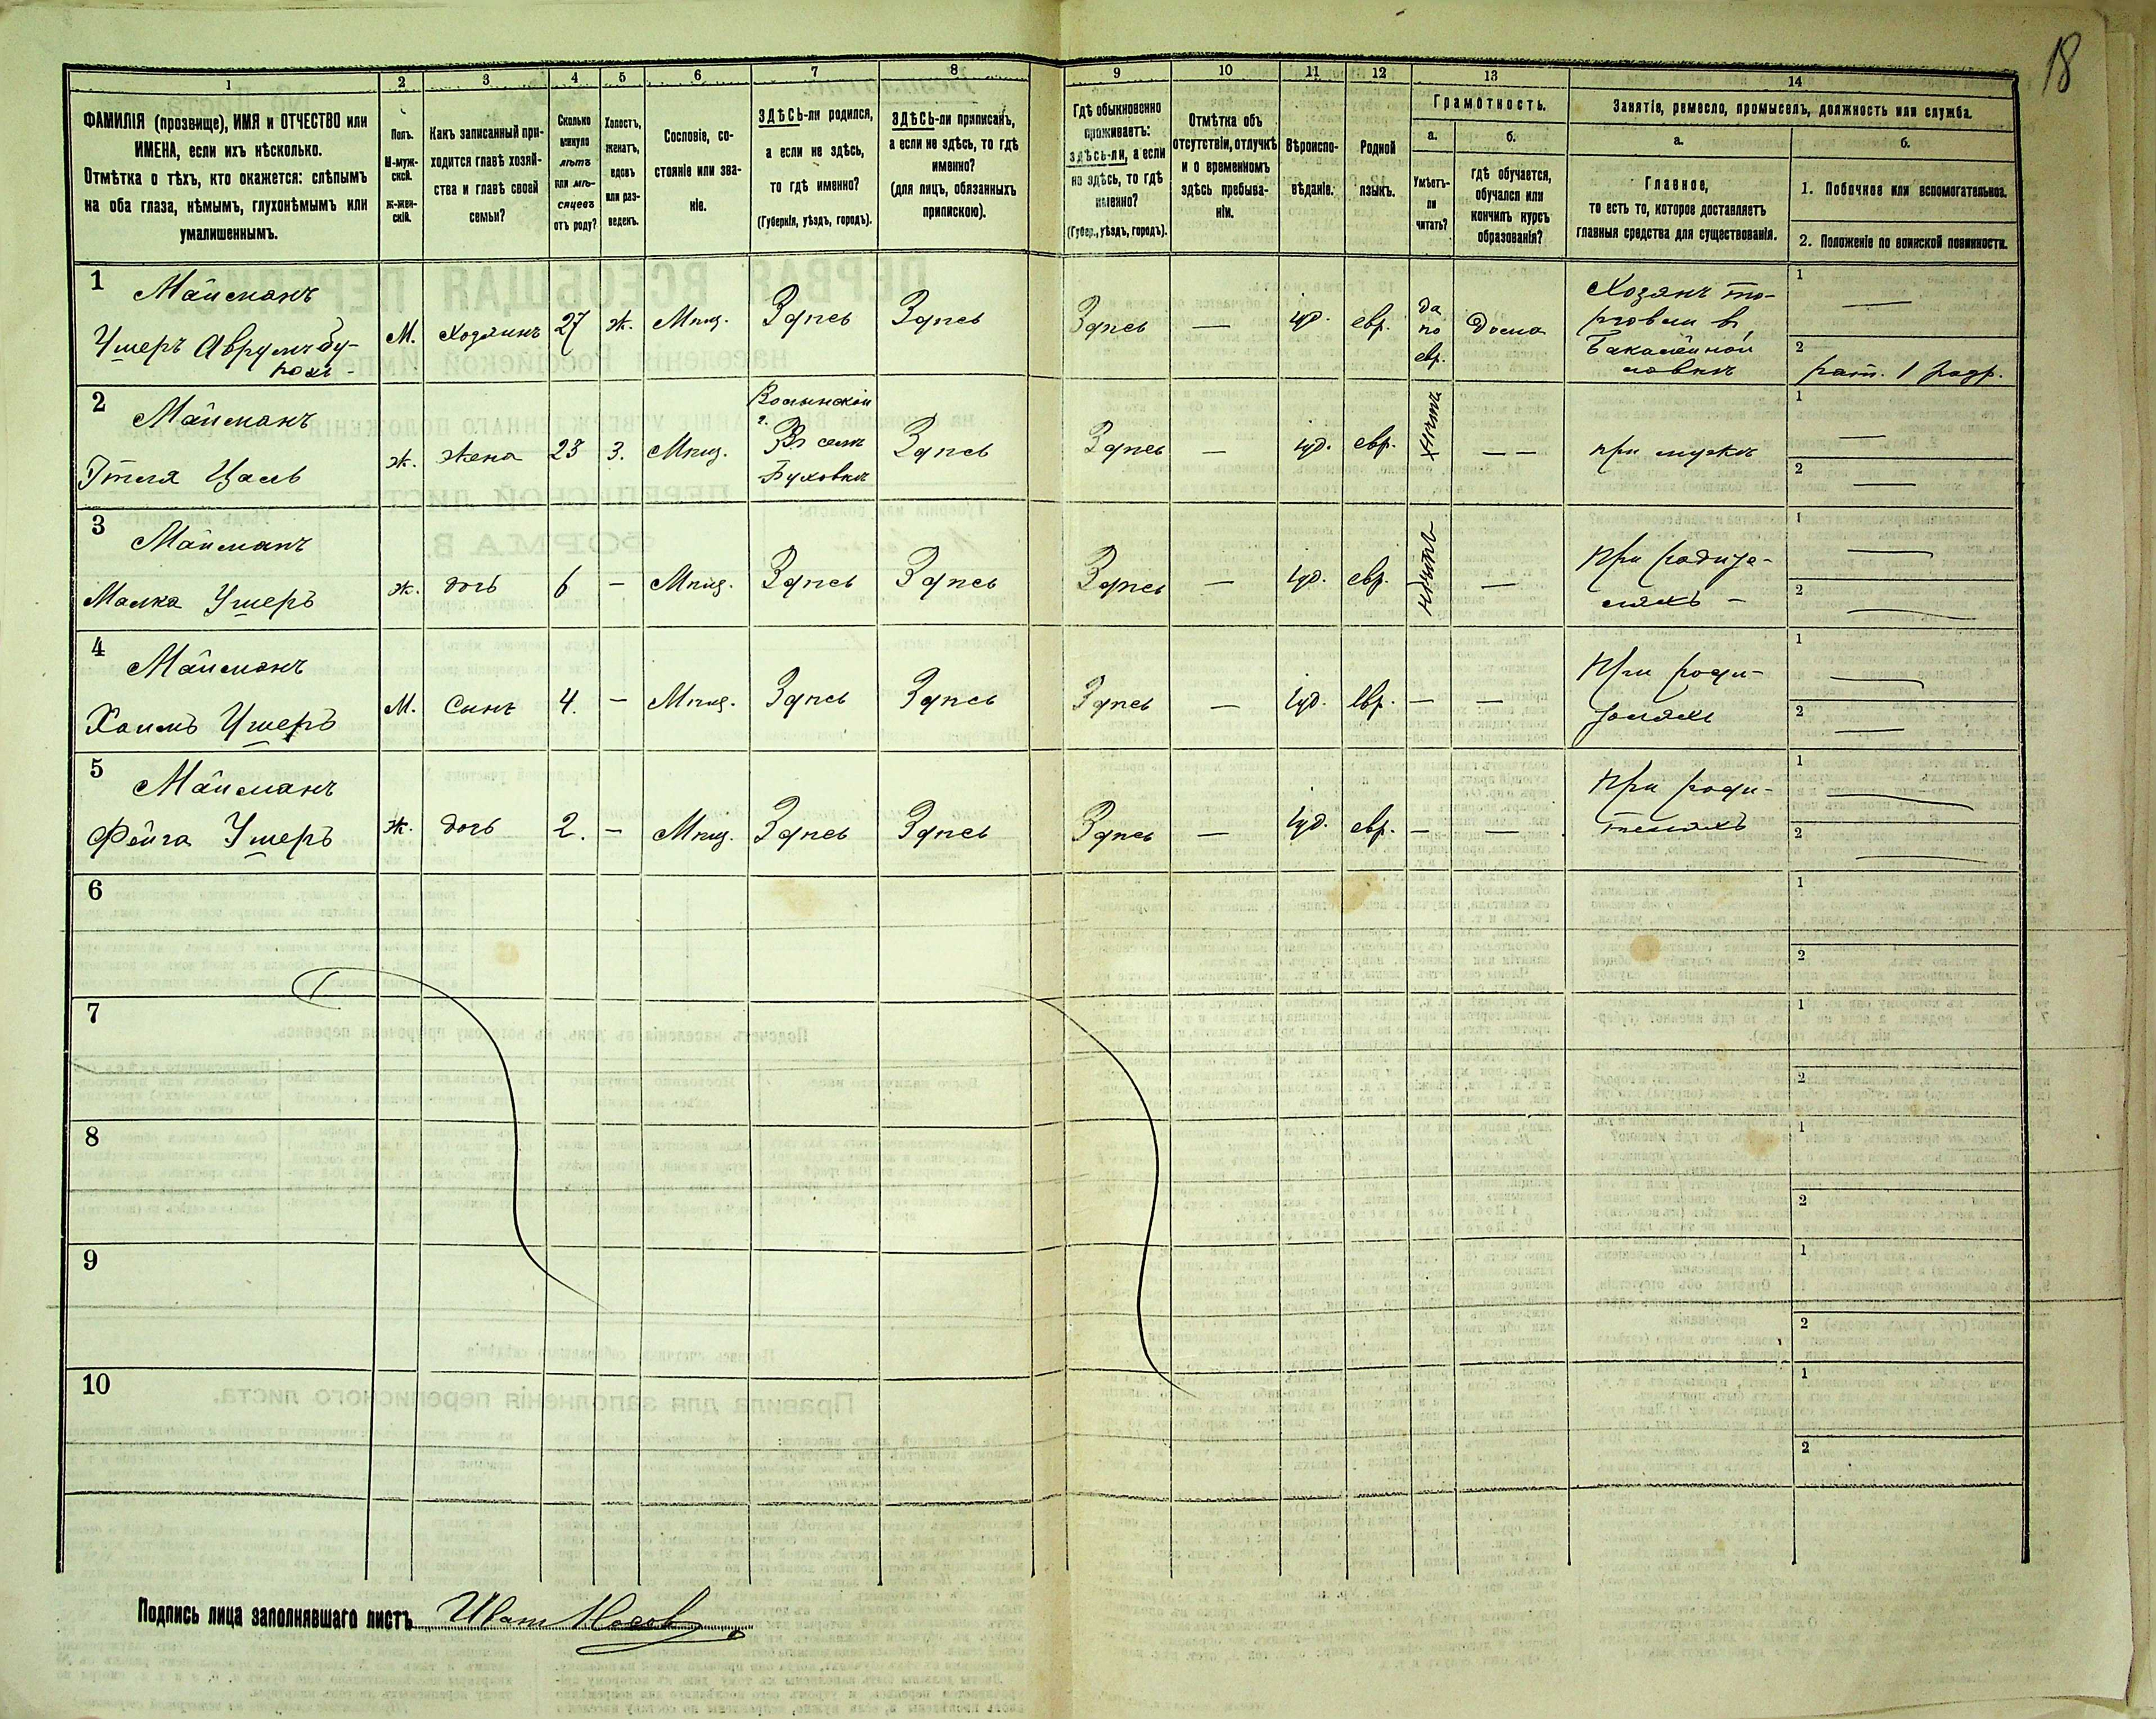 18
1 2 3 4 5 6 7 8 9 10 11 12 13 14
ФАМИЛІЯ (прозвище), ИМЯ и ОТЧЕСТВО или
ИМЕНА, если ихъ нѣсколько.
Отмѣтка о тѣхъ, кто окажется: слѣпымъ
на оба глаза, нѣмымъ, глухонѣмымъ или
умалишеннымъ.
Полъ.
М-муж-
ской.
Ж-жен-
скій.
Какъ записанный при-
ходится главѣ хозяй-
ства и главѣ своей
семьи?
Сколько
минуло
лѣтъ
или мѣ-
сяцевъ
отъ роду?
Холостъ,
женатъ,
вдовъ
или раз-
веденъ.
Сословіе, со-
стояніе или зва-
ніе.
ЗДѢСЬ-ли родился,
а если не здѣсь,
то гдѣ именно?
(Губернія, уѣздъ, городъ).
ЗДѢСЬ-ли приписанъ,
а если не здѣсь, то гдѣ
именно?
(для лицъ, обязанныхъ
припискою).
Гдѣ обыкновенно
проживаетъ:
здѣсь-ли, а если
не здѣсь, то гдѣ
именно?
(Губер., уѣздъ, городъ).
Отмѣтка объ
отсутствіи, отлучкѣ
и о временномъ
здѣсь пребыва-
ніи.
Вѣроиспо-
вѣданіе.
Родной
языкъ.
Грамотность.
а.
Умѣетъ-
ли
читать?
б.
гдѣ обучается,
обучался или
кончилъ курсъ
образованія?
Занятіе, ремесло, промыселъ, должность или служба.
а.
Главное,
то есть то, которое доставляетъ
главныя средства для существованія.
б.
1. Побочное или вспомогательное.
2. Положеніе по воинской повинности.
1
Майманъ
Ушеръ Аврумъ
М. Хозяинъ 27 ж. Мѣщ. Здѣсь Здѣсь Здѣсь — іуд. евр.
да
по
евр.
дома
Хозяинъ то-
рговли въ
Бакалейной
лавкѣ
1 —
2 рат. 1 разр.
2
Майманъ
Этля Цаль
ж. жена 23 з. Мѣщ.
Волынской
г.
Въ селѣ
Буховкѣ
Здѣсь Здѣсь — іуд. евр. нѣтъ — —
при мужѣ
1 —
2 —
3
Майманъ
Малка Ушеръ
ж. дочь 6 — Мѣщ. Здѣсь Здѣсь Здѣсь — іуд. евр. нѣтъ —
1 —
2 —
4
Майманъ
Хаимъ Ушеръ
М. Сынъ 4. — Мѣщ. Здѣсь Здѣсь Здѣсь — іуд. евр. — —
1 —
2 —
5
Майманъ
Фейга Ушеръ
ж. дочь 2. — Мѣщ. Здѣсь Здѣсь Здѣсь — іуд. евр. — —
При роди-
теляхъ
1 —
2 —
6
1
2
7
1
2
8
1
2
9
1
2
10
1
2
Подпись лица заполнявшаго листъ